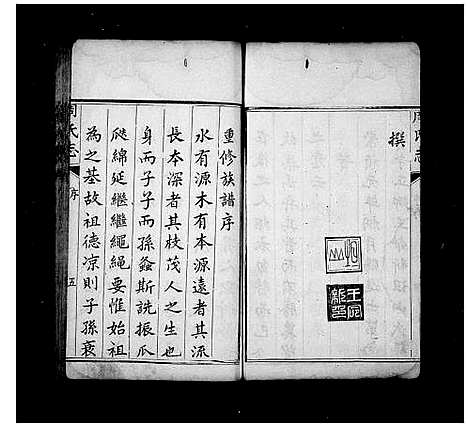 撰
重修族譜序
水有源木有本源遠者其流
長本深者其枝茂人之生也
身而子子而孫螽斯詵振瓜
瓞綿延繼繼繩繩要惟始祖
為之基故祖德凉則子孫衰
周氏志
序
五